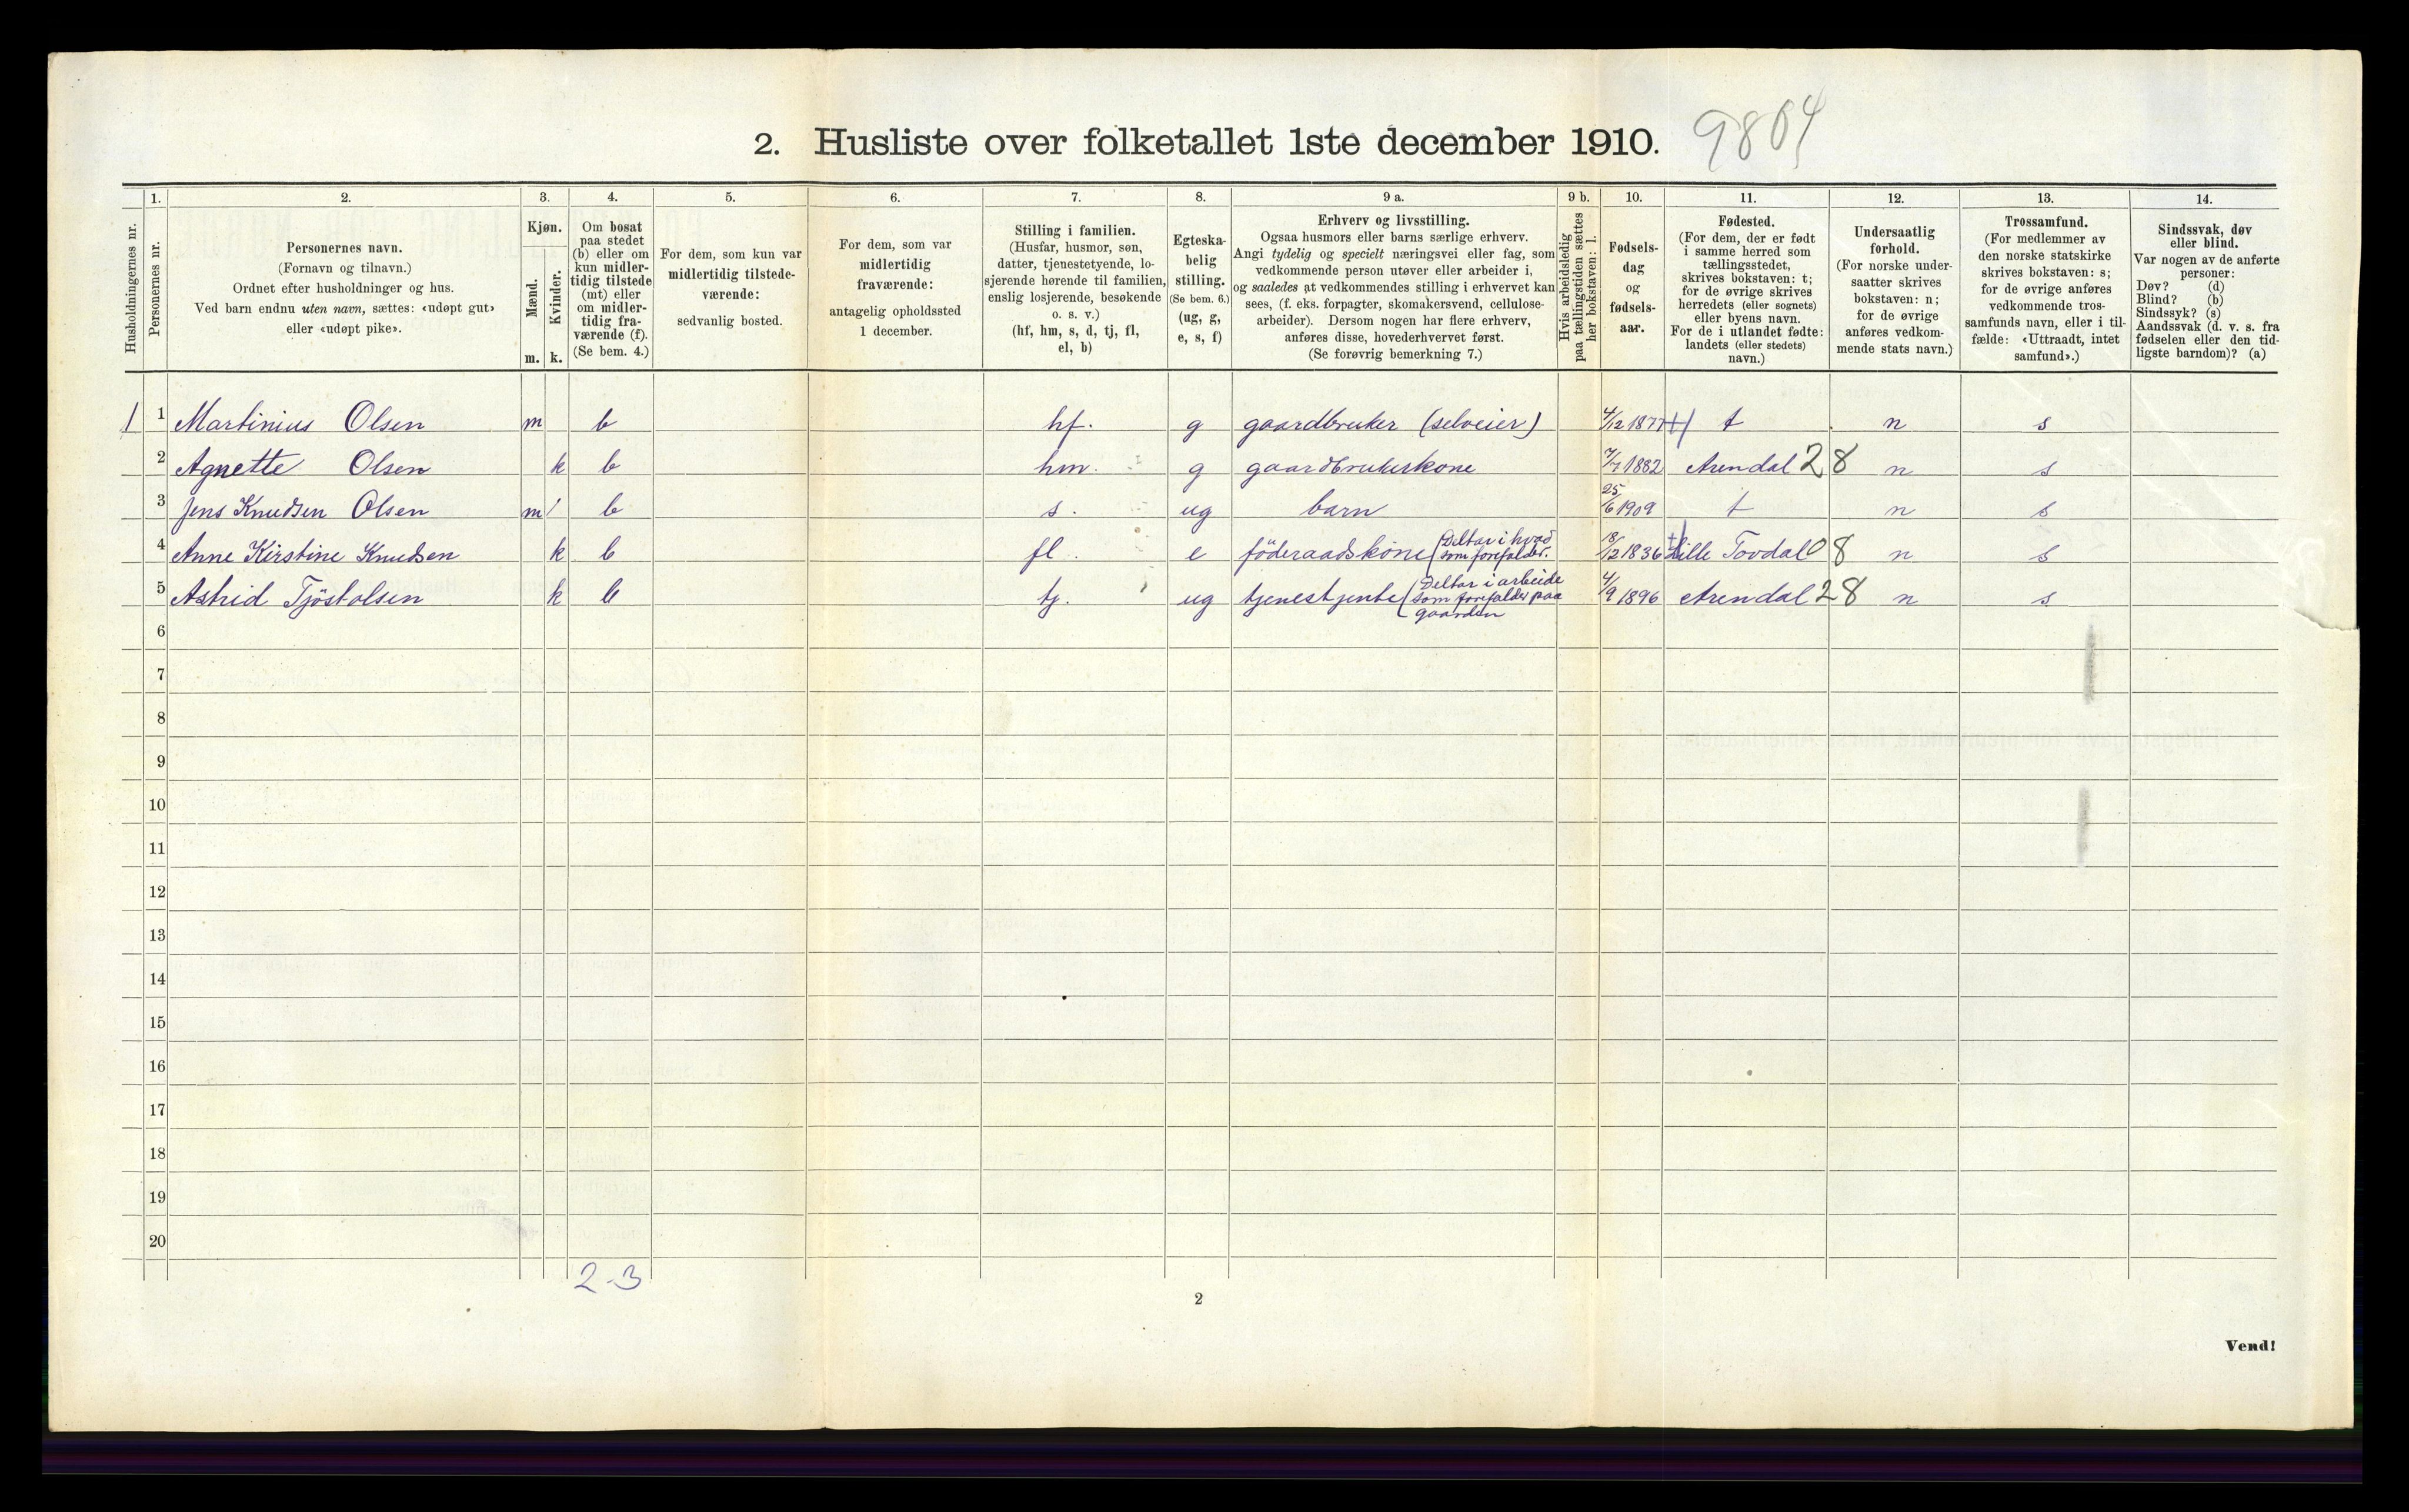 2. Husliste over folketallet 1ste december 1910. 9804
Husholdningernes nr.
1.
Personernes nr.
2.
Personernes navn.
(Fornavn og tilnavn.)
Ordnet efter husholdninger og hus.
Ved barn endnu uten navn, sættes: «udøpt gut»
eller «udøpt pike».
3.
Kjøn.
Mænd.
Kvinder.
m. k.
4.
Om bosat
paa stedet
(b) eller om
kun midler-
tidig tilstede
(mt) eller
om midler-
tidig fra-
værende (f).
(Se bem. 4.)
5.
For dem, som kun var
midlertidig tilstede-
værende:
sedvanlig bosted.
6.
For dem, som var
midlertidig
fraværende:
antagelig opholdssted
1 december.
7.
Stilling i familien.
(Husfar, husmor, søn,
datter, tjenestetyende, lo-
sjerende hørende til familien,
enslig losjerende, besøkende
o. s. v.)
(hf, hm, s, d, tj, fl,
el, b)
8.
Egteska-
belig
stilling.
(Se bem. 6.)
(ug, g,
e, s, f)
9 a.
Erhverv og livsstilling.
Ogsaa husmors eller barns særlige erhverv.
Angi tydelig og specielt næringsvei eller fag, som
vedkommende person utøver eller arbeider i,
og saaledes at vedkommendes stilling i erhvervet kan
sees, (f. eks. forpagter, skomakersvend, cellulose-
arbeider). Dersom nogen har flere erhverv,
anføres disse, hovederhvervet først.
(Se forøvrig bemerkning 7.)
9 b.
Hvis arbeidsledig
paa tællingstiden sættes
her bokstaven: l.
10.
Fødsels-
dag
og
fødsels-
aar.
11.
Fødested.
(For dem, der er født
i samme herred som
tællingsstedet,
skrives bokstaven: t;
for de øvrige skrives
herredets (eller sognets)
eller byens navn.
For de i utlandet fødte:
landets (eller stedets)
navn.)
12.
Undersaatlig
forhold.
(For norske under-
saatter skrives
bokstaven: n;
for de øvrige
anføres vedkom-
mende stats navn.)
13.
Trossamfund.
(For medlemmer av
den norske statskirke
skrives bokstaven: s;
for de øvrige anføres
vedkommende tros-
samfunds navn, eller i til-
fælde: «Uttraadt, intet
samfund».)
14.
Sindssvak, døv
eller blind.
Var nogen av de anførte
personer:
Døv? (d)
Blind? (b)
Sindssyk? (s)
Aandssvak (d. v. s. fra
fødselen eller den tid-
ligste barndom)? (a)
1 1 Martinius Olsen m b hf. g gaardbruker (selveier) 4/12 1877 t n s
2 Agnette Olsen k b hm. g gaardbrukerkone 7/7 1882 Arendal 28 n s
3 Jens Knudsen Olsen m b s. ug barn 25/6 1909 t n s
4 Anne Kirstine Knudsen k b fl. e föderaadskone (Deltar i hvad
som forefalder. 18/12 1836 Lille Tovdal 08 n s
5 Astrid Tjöstolsen k b tj. ug tjenestjente (Deltar i arbeide
som forefalder paa
gaarden 4/9 1896 Arendal 28 n s
6
7
8
9
10
11
12
13
14
15
16
17
18
19
20
2-3
2
Vend!